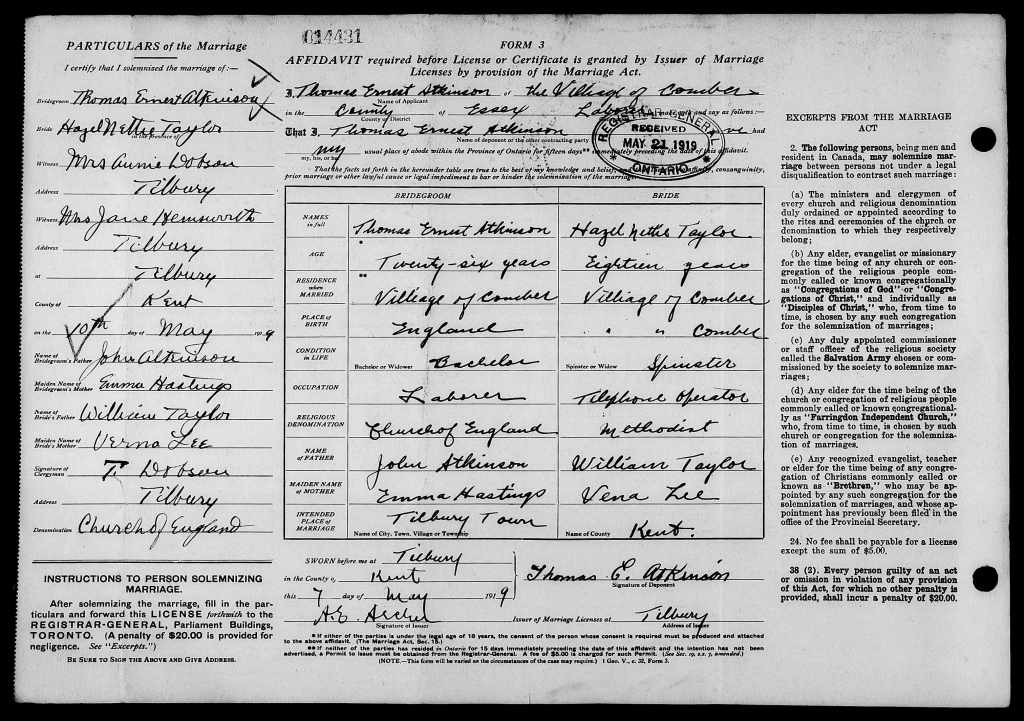 014431
PARTICULARS of the Marriage
I certify that I solemnized the marriage of:—
Bridegroom Thomas Ernest Atkinson
Bride Hazel Nettie Taylor
Witness Mrs Annie Dobson
Address Tilbury
Witness Mrs Jane Hemsworth
Address Tilbury
at Tilbury
County of Kent
on the 10th day of May 1919
Name of Bridegroom's Father John Atkinson
Maiden Name of Bridegroom's Mother Emma Hastings
Name of Bride's Father William Taylor
Maiden Name of Bride's Mother Verna Lee
Signature of Clergyman T. Dobson
Address Tilbury
Denomination Church of England
INSTRUCTIONS TO PERSON SOLEMNIZING
MARRIAGE.
After solemnizing the marriage, fill in the par-
ticulars and forward this LICENSE forthwith to the
REGISTRAR-GENERAL, Parliament Buildings,
TORONTO. (A penalty of $20.00 is provided for
negligence. See "Excerpts.")
BE SURE TO SIGN THE ABOVE AND GIVE ADDRESS.
FORM 3
AFFIDAVIT required before License or Certificate is granted by Issuer of Marriage
Licenses by provision of the Marriage Act.
I, Thomas Ernest Atkinson of the Village of Comber
Name of Applicant
in the County of Essex Laborer make oath and say as follows:—
County or District
That I, Thomas Ernest Atkinson have had
Name of deponent or the other contracting party
my usual place of abode within the Province of Ontario for fifteen days** immediately preceding the date of this affidavit.
my, his, or her
REGISTRAR GENERAL
RECEIVED
MAY 21 1919
ONTARIO
That the facts set forth in the hereunder table are true to the best of my knowledge and belief, and affinity, consanguinity,
prior marriage or other lawful cause or legal impediment to bar or hinder the solemnization of the marriage.
BRIDEGROOM BRIDE
NAMES in full Thomas Ernest Atkinson Hazel Nettie Taylor
AGE * Twenty-six years Eighteen years
RESIDENCE when MARRIED ** Villiage of Comber Villiage of Comber
PLACE of BIRTH England " " Comber
CONDITION in LIFE Bachelor or Widower Bachelor Spinster or Widow Spinster
OCCUPATION Laborer Telephone Operator
RELIGIOUS DENOMINATION Church of England Methodist
NAME OF FATHER John Atkinson William Taylor
MAIDEN NAME of MOTHER Emma Hastings Vena Lee
INTENDED PLACE of MARRIAGE Tilbury Town Kent.
Name of City, Town, Village or Township Name of County
SWORN before me at Tilbury
in the County of Kent
this 7 day of May 1919
Thomas E. Atkinson
Signature of Deponent
A.E. Archer Issuer of Marriage Licenses at Tilbury
Signature of Issuer Address of Issuer
* If either of the parties is under the legal age of 18 years, the consent of the person whose consent is required must be produced and attached
to the above affidavit. (The Marriage Act, Sec. 15.)
** If neither of the parties has resided in Ontario for 15 days immediately preceding the date of this affidavit and the intention has not been
advertised, a Permit to Issue must be obtained from the Registrar-General. A fee of $5.00 is charged for such Permit. (See Sec. 19, s.s. 7, amended.)
(NOTE.—This form will be varied as the circumstances of the case may require.) 1 Geo. V., c. 32, Form 3.
EXCERPTS FROM THE MARRIAGE
ACT
2. The following persons, being men and
resident in Canada, may solemnize mar-
riage between persons not under a legal
disqualification to contract such marriage:
(a) The ministers and clergymen of
every church and religious denomination
duly ordained or appointed according to
the rites and ceremonies of the church or
denomination to which they respectively
belong;
(b) Any elder, evangelist or missionary
for the time being of any church or con-
gregation of the religious people com-
monly called or known congregationally
as "Congregations of God" or "Congre-
gations of Christ," and individually as
"Disciples of Christ," who, from time to
time, is chosen by any such congregation
for the solemnization of marriages;
(c) Any duly appointed commissioner
or staff officer of the religious society
called the Salvation Army chosen or com-
missioned by the society to solemnize mar-
riages;
(d) Any elder for the time being of the
church or congregation of religious people
commonly called or known congregational-
ly as "Farringdon Independent Church,"
who, from time to time, is chosen by such
church or congregation for the solemniza-
tion of marriages.
(e) Any recognized evangelist, teacher
or elder for the time being of any congre-
gation of Christians commonly called or
known as "Brethren," who may be ap-
pointed by any such congregation for the
solemnization of marriages, and whose ap-
pointment has previously been filed in the
office of the Provincial Secretary.
24. No fee shall be payable for a license
except the sum of $5.00.
38 (2). Every person guilty of an act
or omission in violation of any provision
of this Act, for which no other penalty is
provided, shall incur a penalty of $20.00.